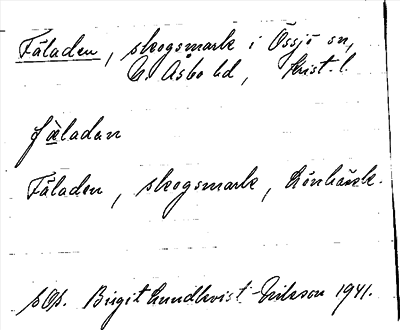 Fäladen, skogsmark i Össjö sn,
N. Åsbo hd, Krist. l.
fäladan
Fäladen, skogsmark,
Uppt. Birgit Lundkvist-Eriksson 1941.